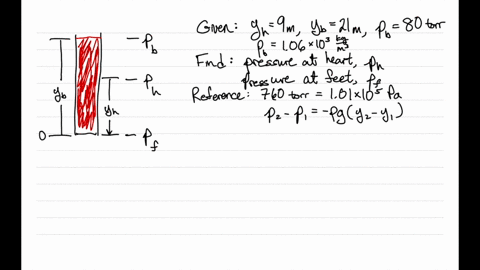 Given: y_h = 9m, y_b = 21m, p_b = 80 torr
ρ_b = 1.06 × 10³ kg/m³
Find: pressure at heart, p_h
pressure at feet, p_f
Reference: 760 torr = 1.01 × 10⁵ Pa
p₂ - p₁ = -ρg(y₂ - y₁)
p_b
p_h
y_b
y_h
0
p_f